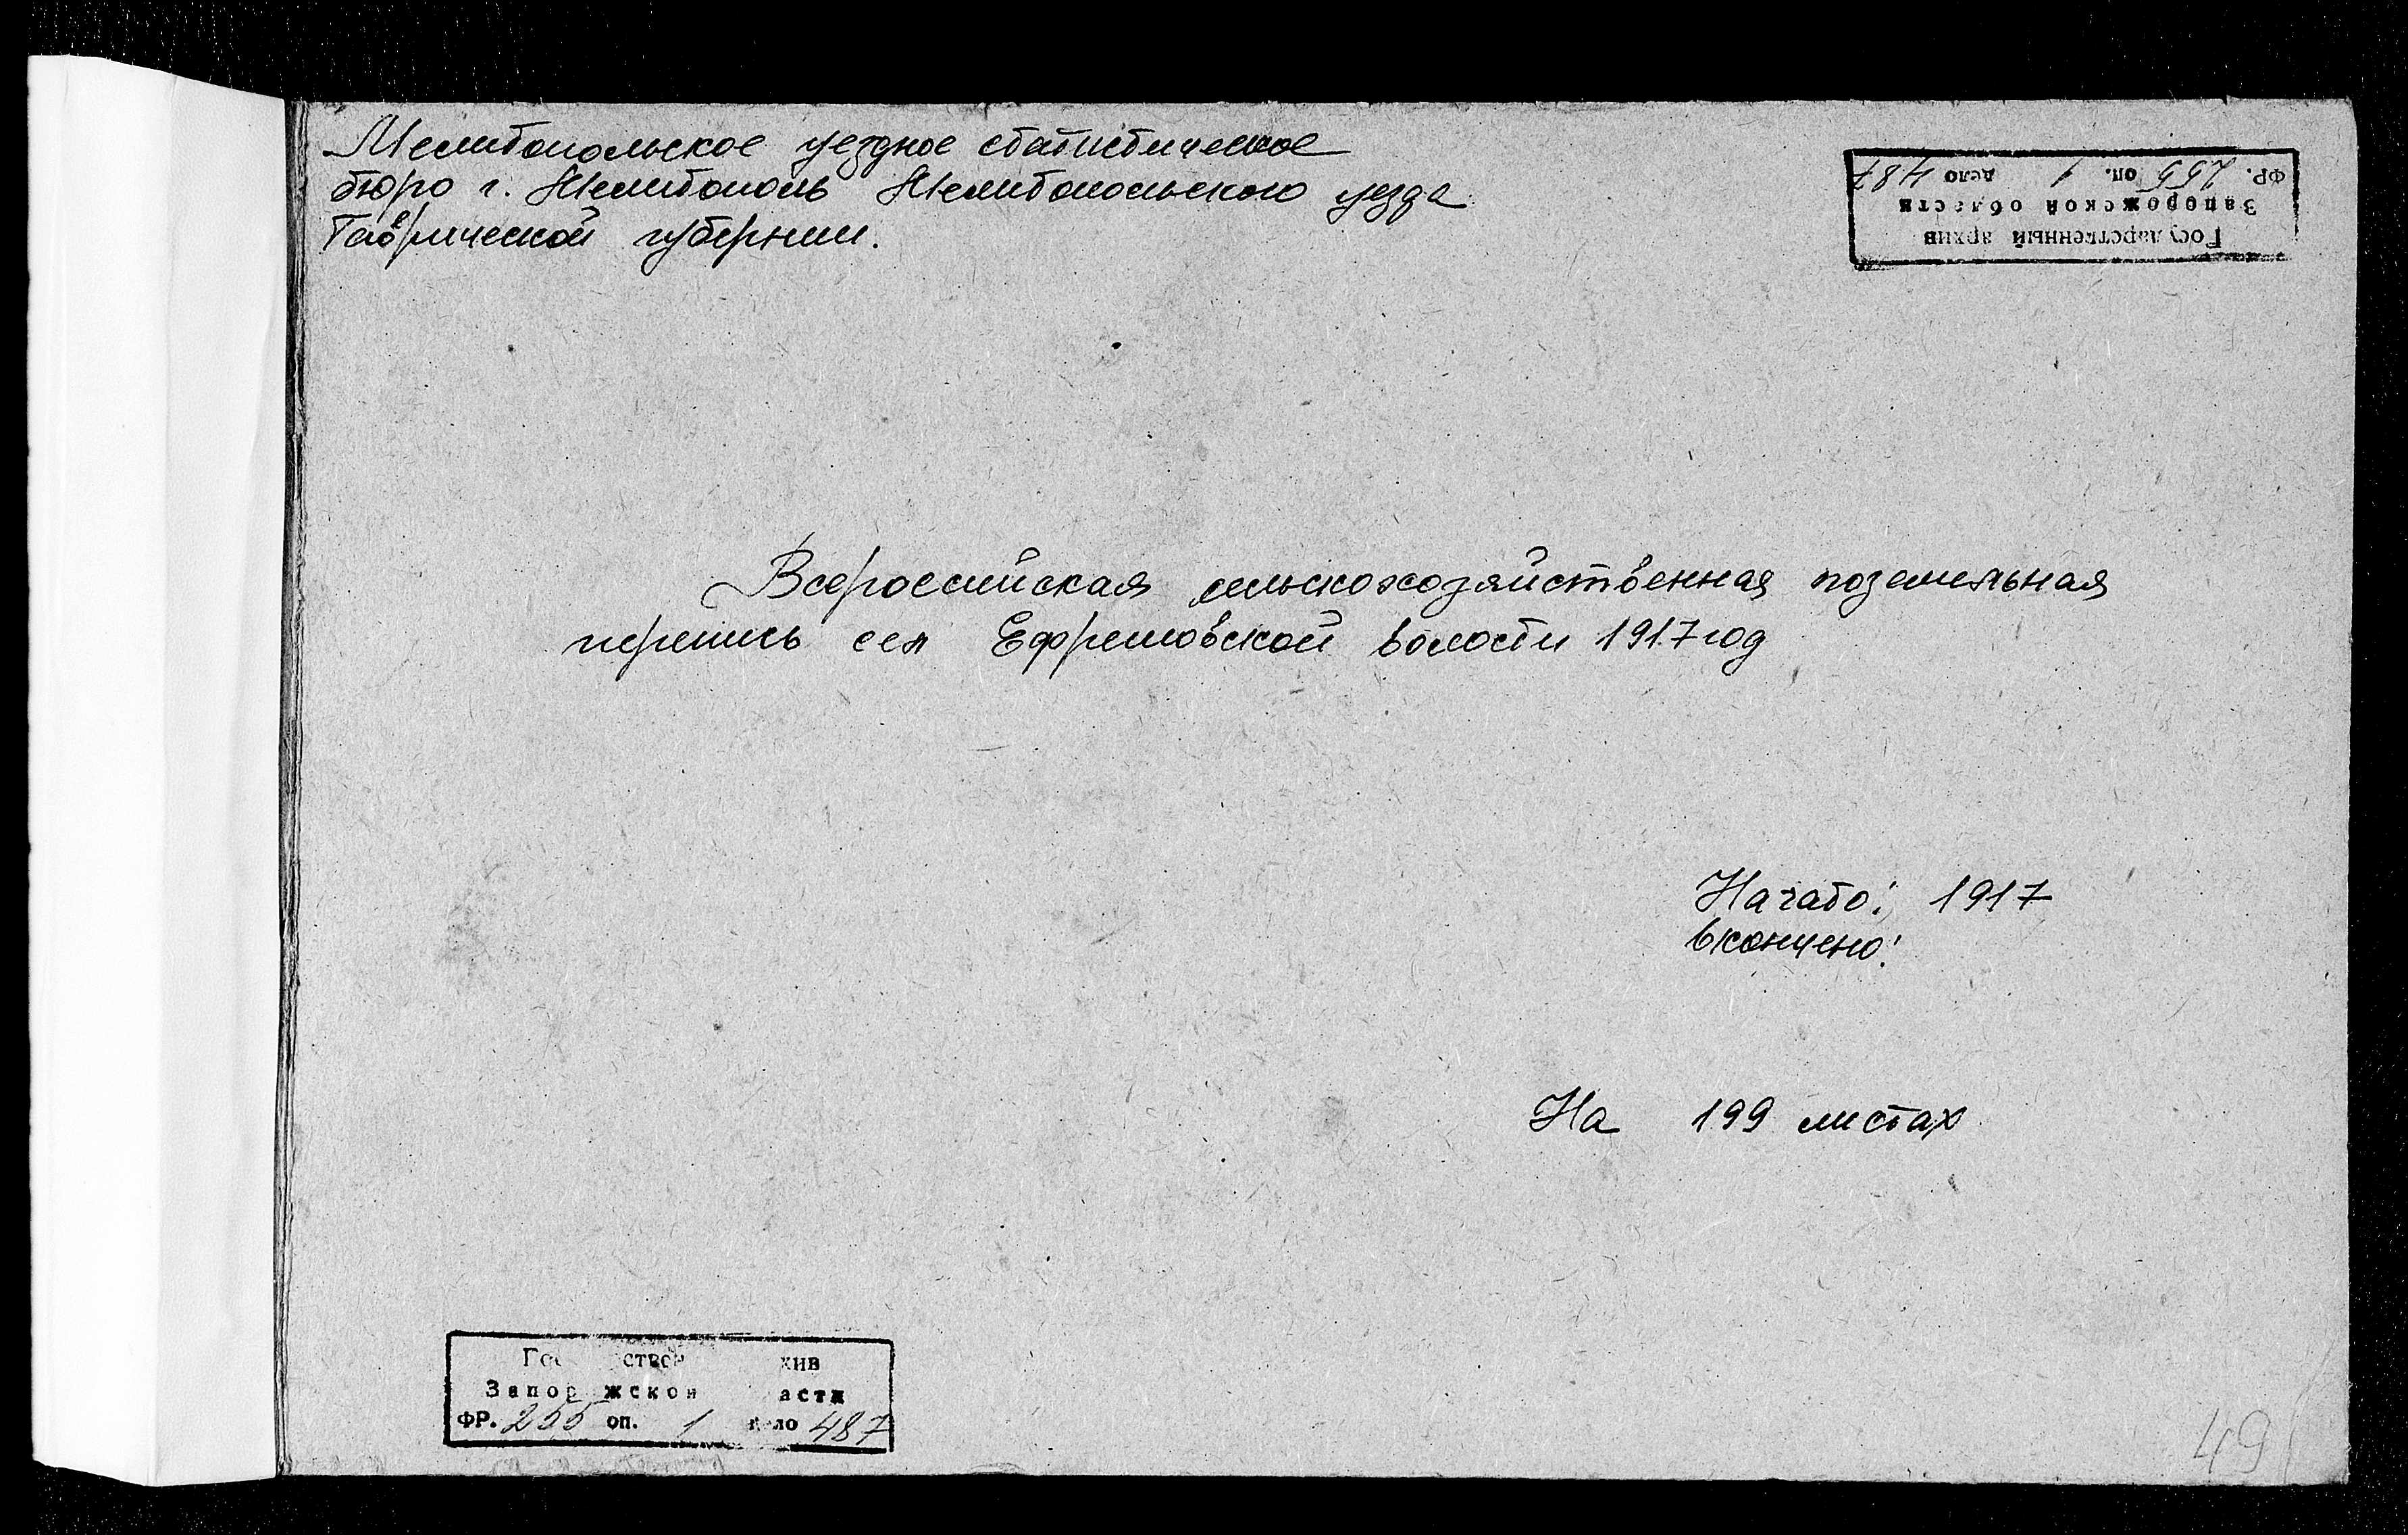 Мелитопольское уездное статистическое
бюро г. Мелитополь Мелитопольского уезда
Таврической губернии.
Государственный архив
Запорожской области
ФР. 255 оп. 1 дело 487
Всероссийская сельскохозяйственная поземельная
перепись сел Ефремовской волости 1917 год
Начато: 1917
Окончено:
На 199 листах
Гос ствен хив
Запор жской асти
ФР. 255 оп. 1 дело 487
49